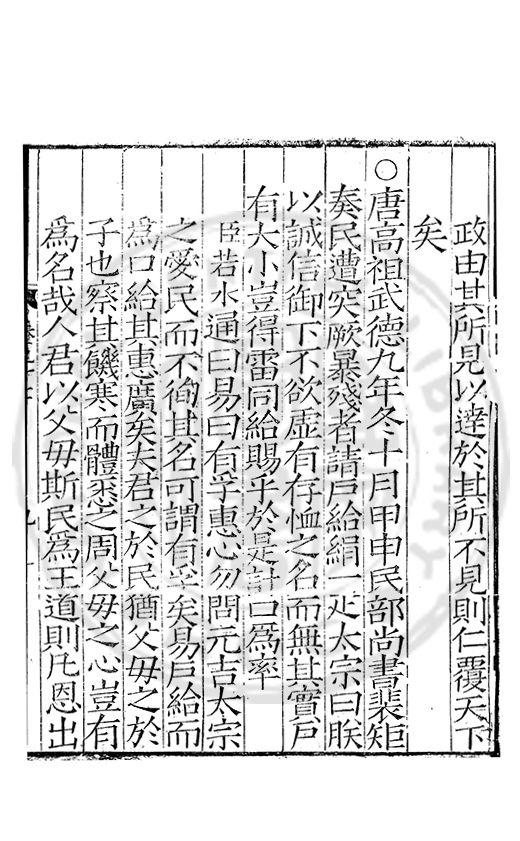 政由其所見以達於其所不見則仁覆天下
矣
○唐高祖武德九年冬十月甲申民部尚書裴矩
奏民遭突厥暴殘者請戶給絹一疋太宗曰朕
以誠信御下不欲虛有存恤之名而無其實戶
有大小豈得雷同給賜乎於是計口爲率
臣若水通曰易曰有孚惠心勿問元吉太宗
之愛民而不徇其名可謂有孚矣易戶給而
爲口給其惠廣矣夫君之於民猶父毋之於
子也察其饑寒而體悉之周父毋之心豈有
爲名哉人君以父毋斯民爲王道則凡恩出